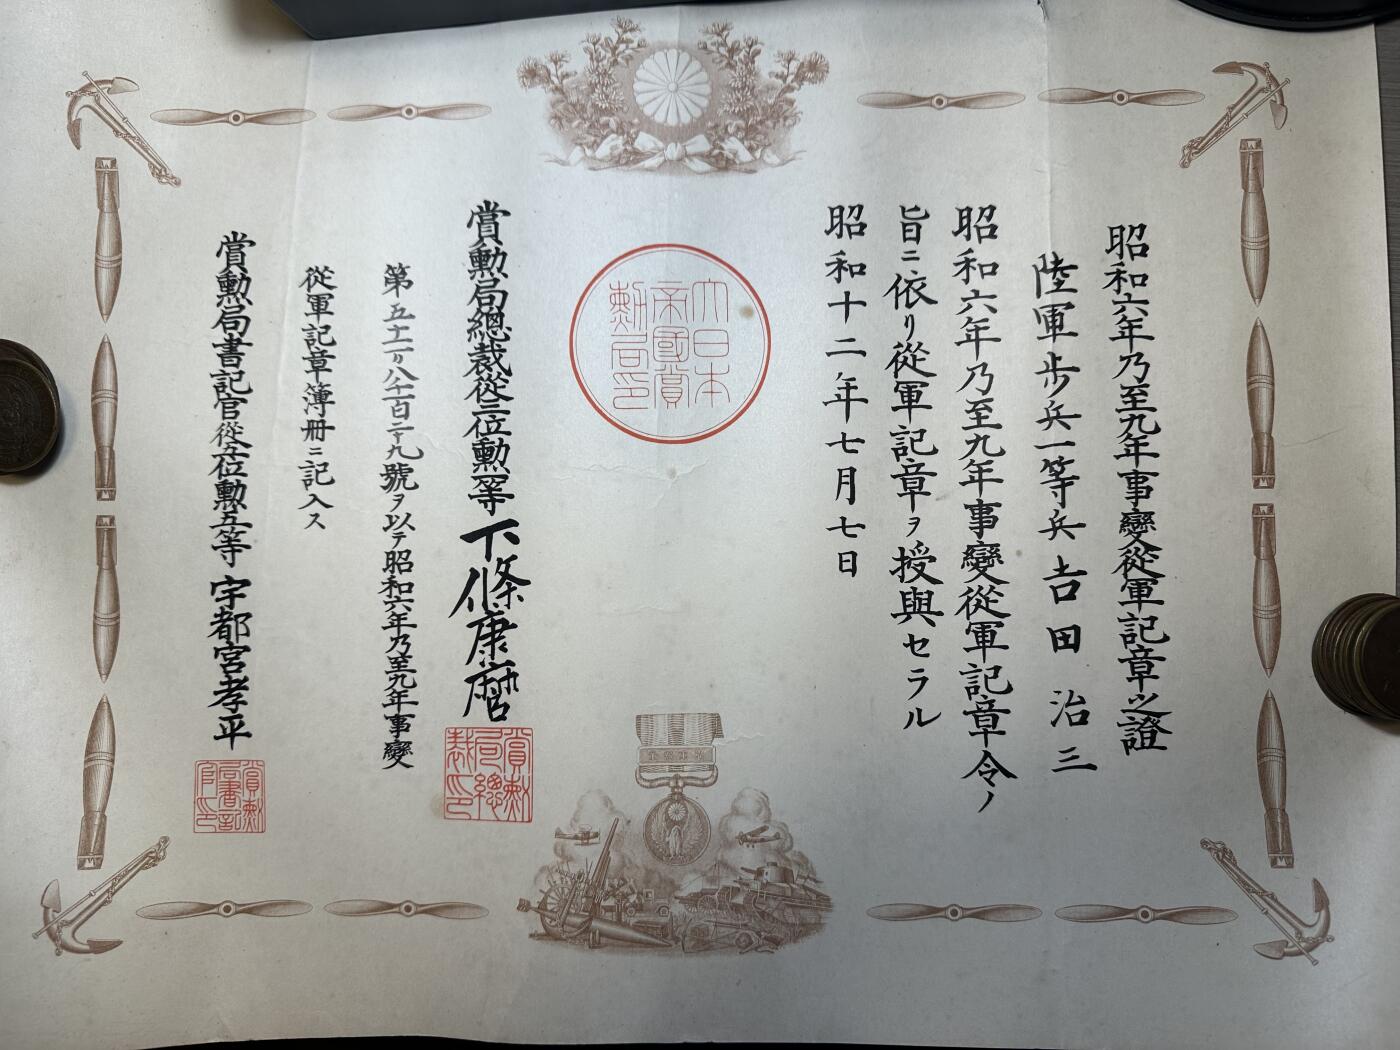 昭和六年乃至九年事變從軍記章之證
陸軍歩兵一等兵吉田治三
昭和六年乃至九年事變從軍記章令ノ
旨ニ依リ從軍記章ヲ授與セラル
昭和十二年七月七日
大日本
帝國賞
勲局印
賞勲局總裁從三位勲一等下條康麿
賞勲
局總
裁印
號ヲ以テ昭和六年乃至九年事變
從軍記章簿冊ニ記入ス
賞勲局書記官從五位勲五等宇都宮孝平
賞勲
局書記
官印